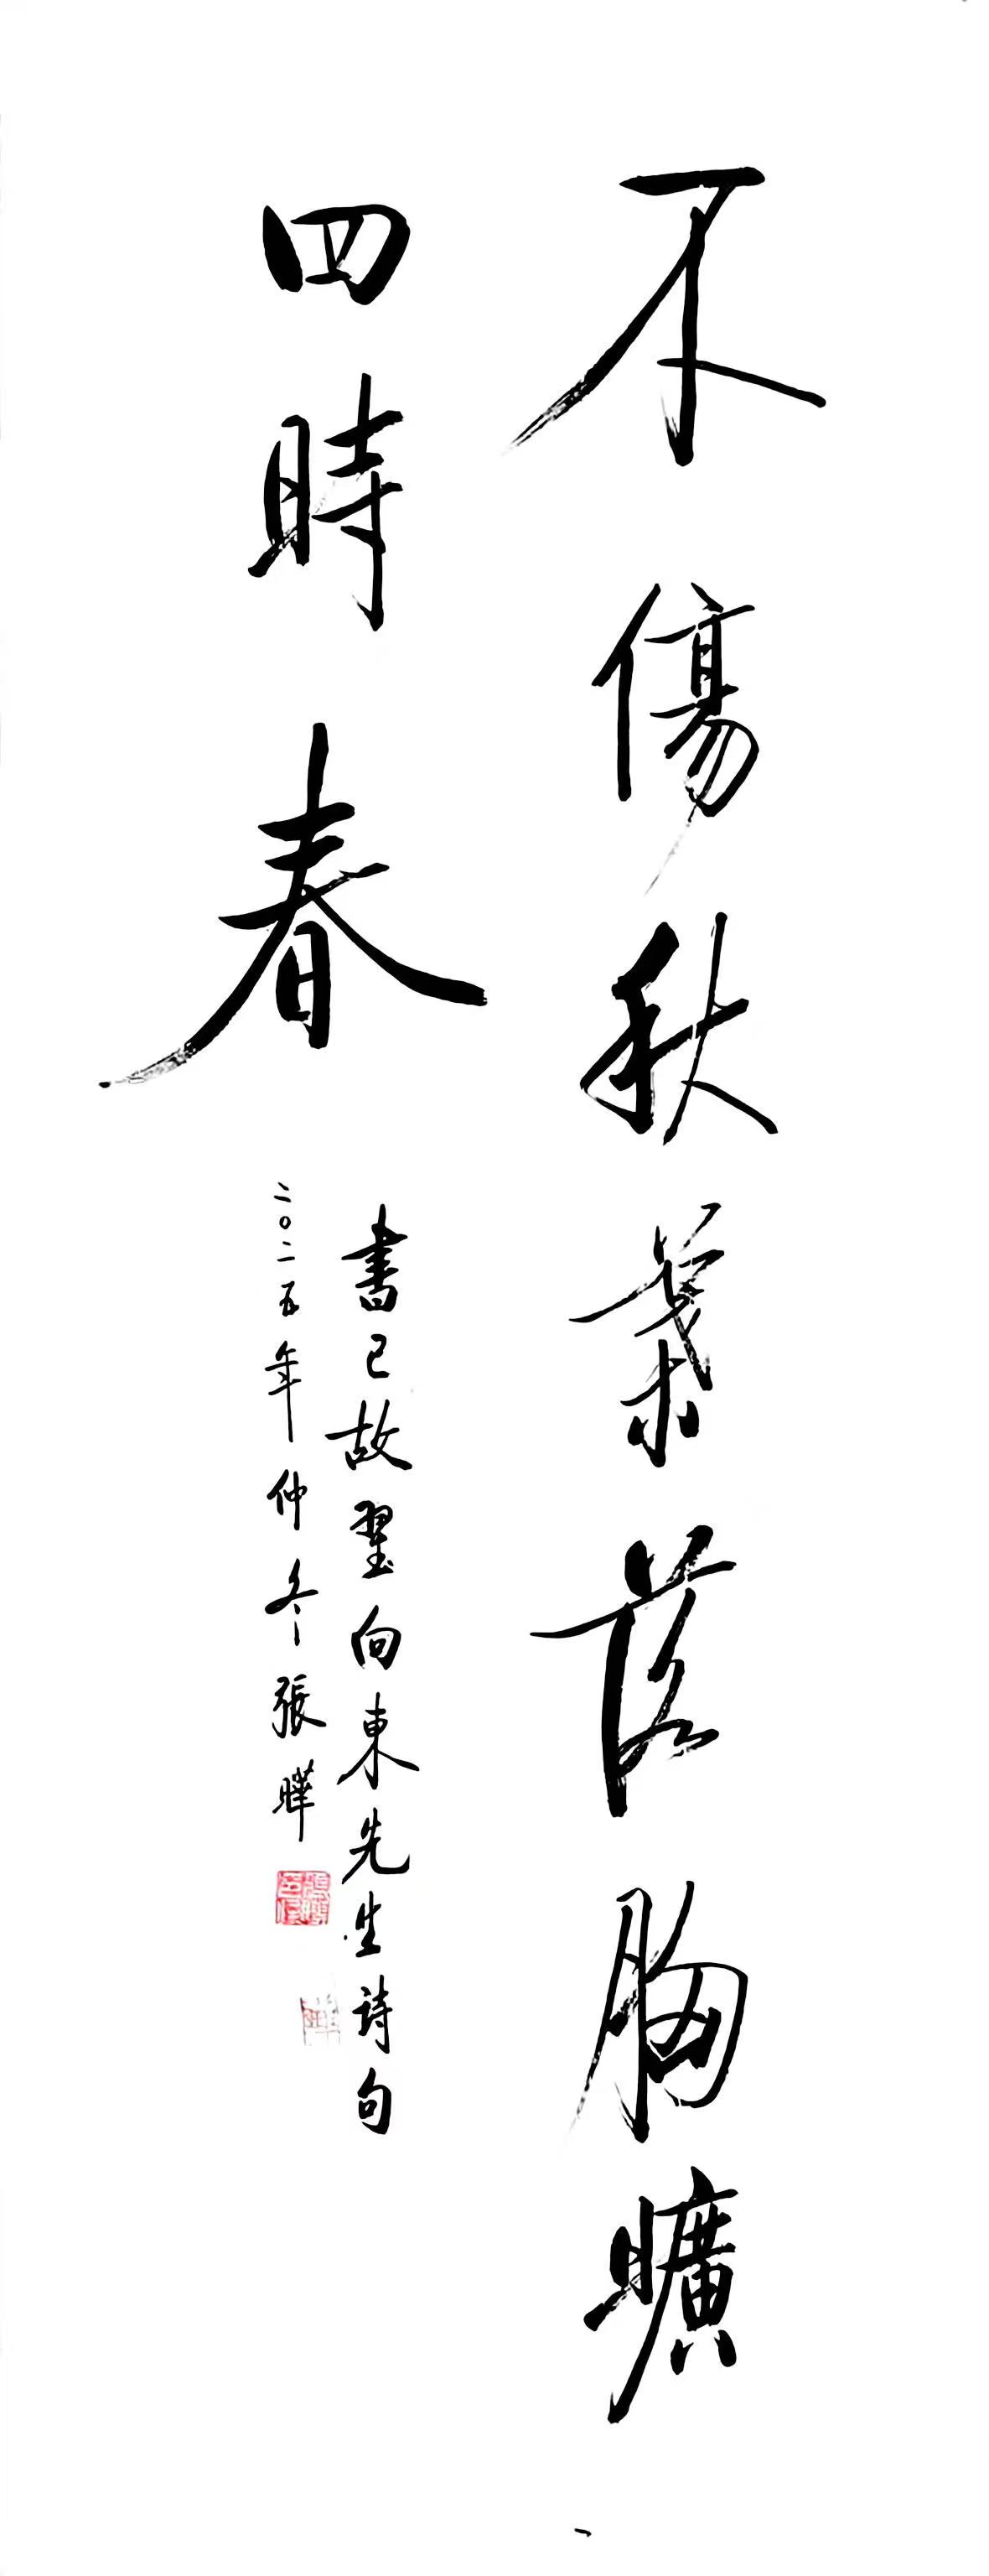 不傷秋葉落胸曠
四時春
書已故翟向東先生詩句
二〇二五年仲冬張曄